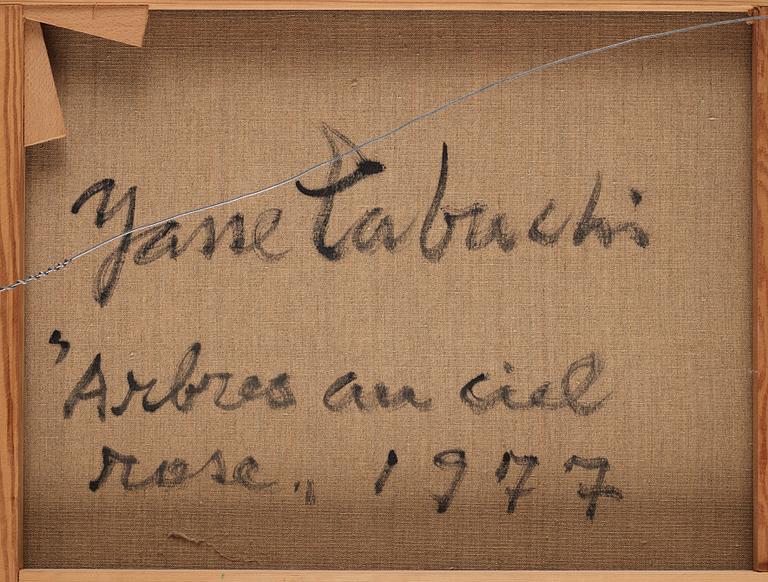 Yasse Tabuchi
"Arbres au ciel
rose", 1977